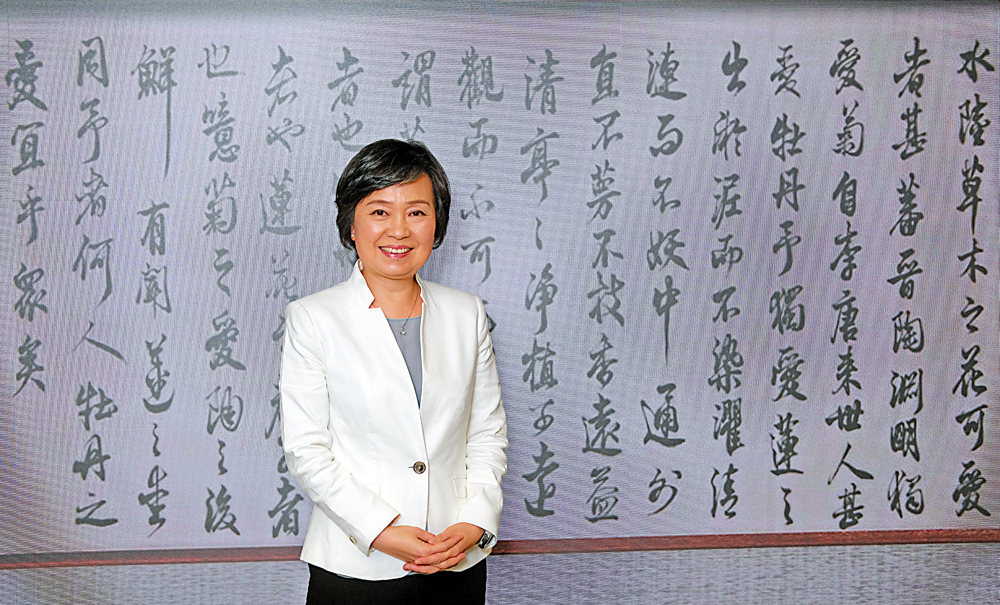 水陸草木之花可愛
者甚蕃晉陶淵明獨
愛菊自李唐来世人甚
愛牡丹予獨愛蓮之
出淤泥而不染濯清
漣而不妖中通外
直不蔓不枝香遠益
清亭〻淨植可遠
觀而不可
謂
者也
者也蓮花之君子者
也噫菊之愛陶之後
鮮有聞蓮之愛
同予者何人牡丹之
愛宜乎眾矣